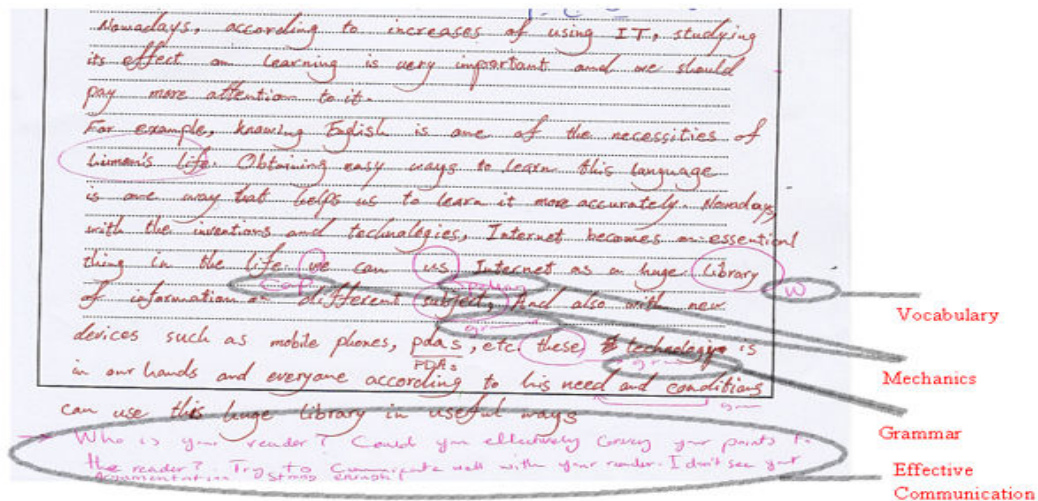 Nowadays, according to increases of using IT, studying
its effect on learning is very important and we should
pay more attention to it.
For example, knowing English is one of the necessities of
human's life. Obtaining easy ways to learn this language
is one way that helps us to learn it more accurately. Nowadays,
with the inventions and technologies, Internet becomes an essential
thing in the life. we can uss Internet as a huge library
Capt. Spelling W
of information on different subject, And also with new
gr
devices such as mobile phones, pdas, etc. these technology is
PDAs gr
in our hands and everyone according to his need and conditions
gr
can use this huge library in useful ways
Who is your reader? Could you effectively convey your points to
the reader? Try to communicate well with your reader. I don't see your
argumentation strong enough!
Vocabulary
Mechanics
Grammar
Effective
Communication